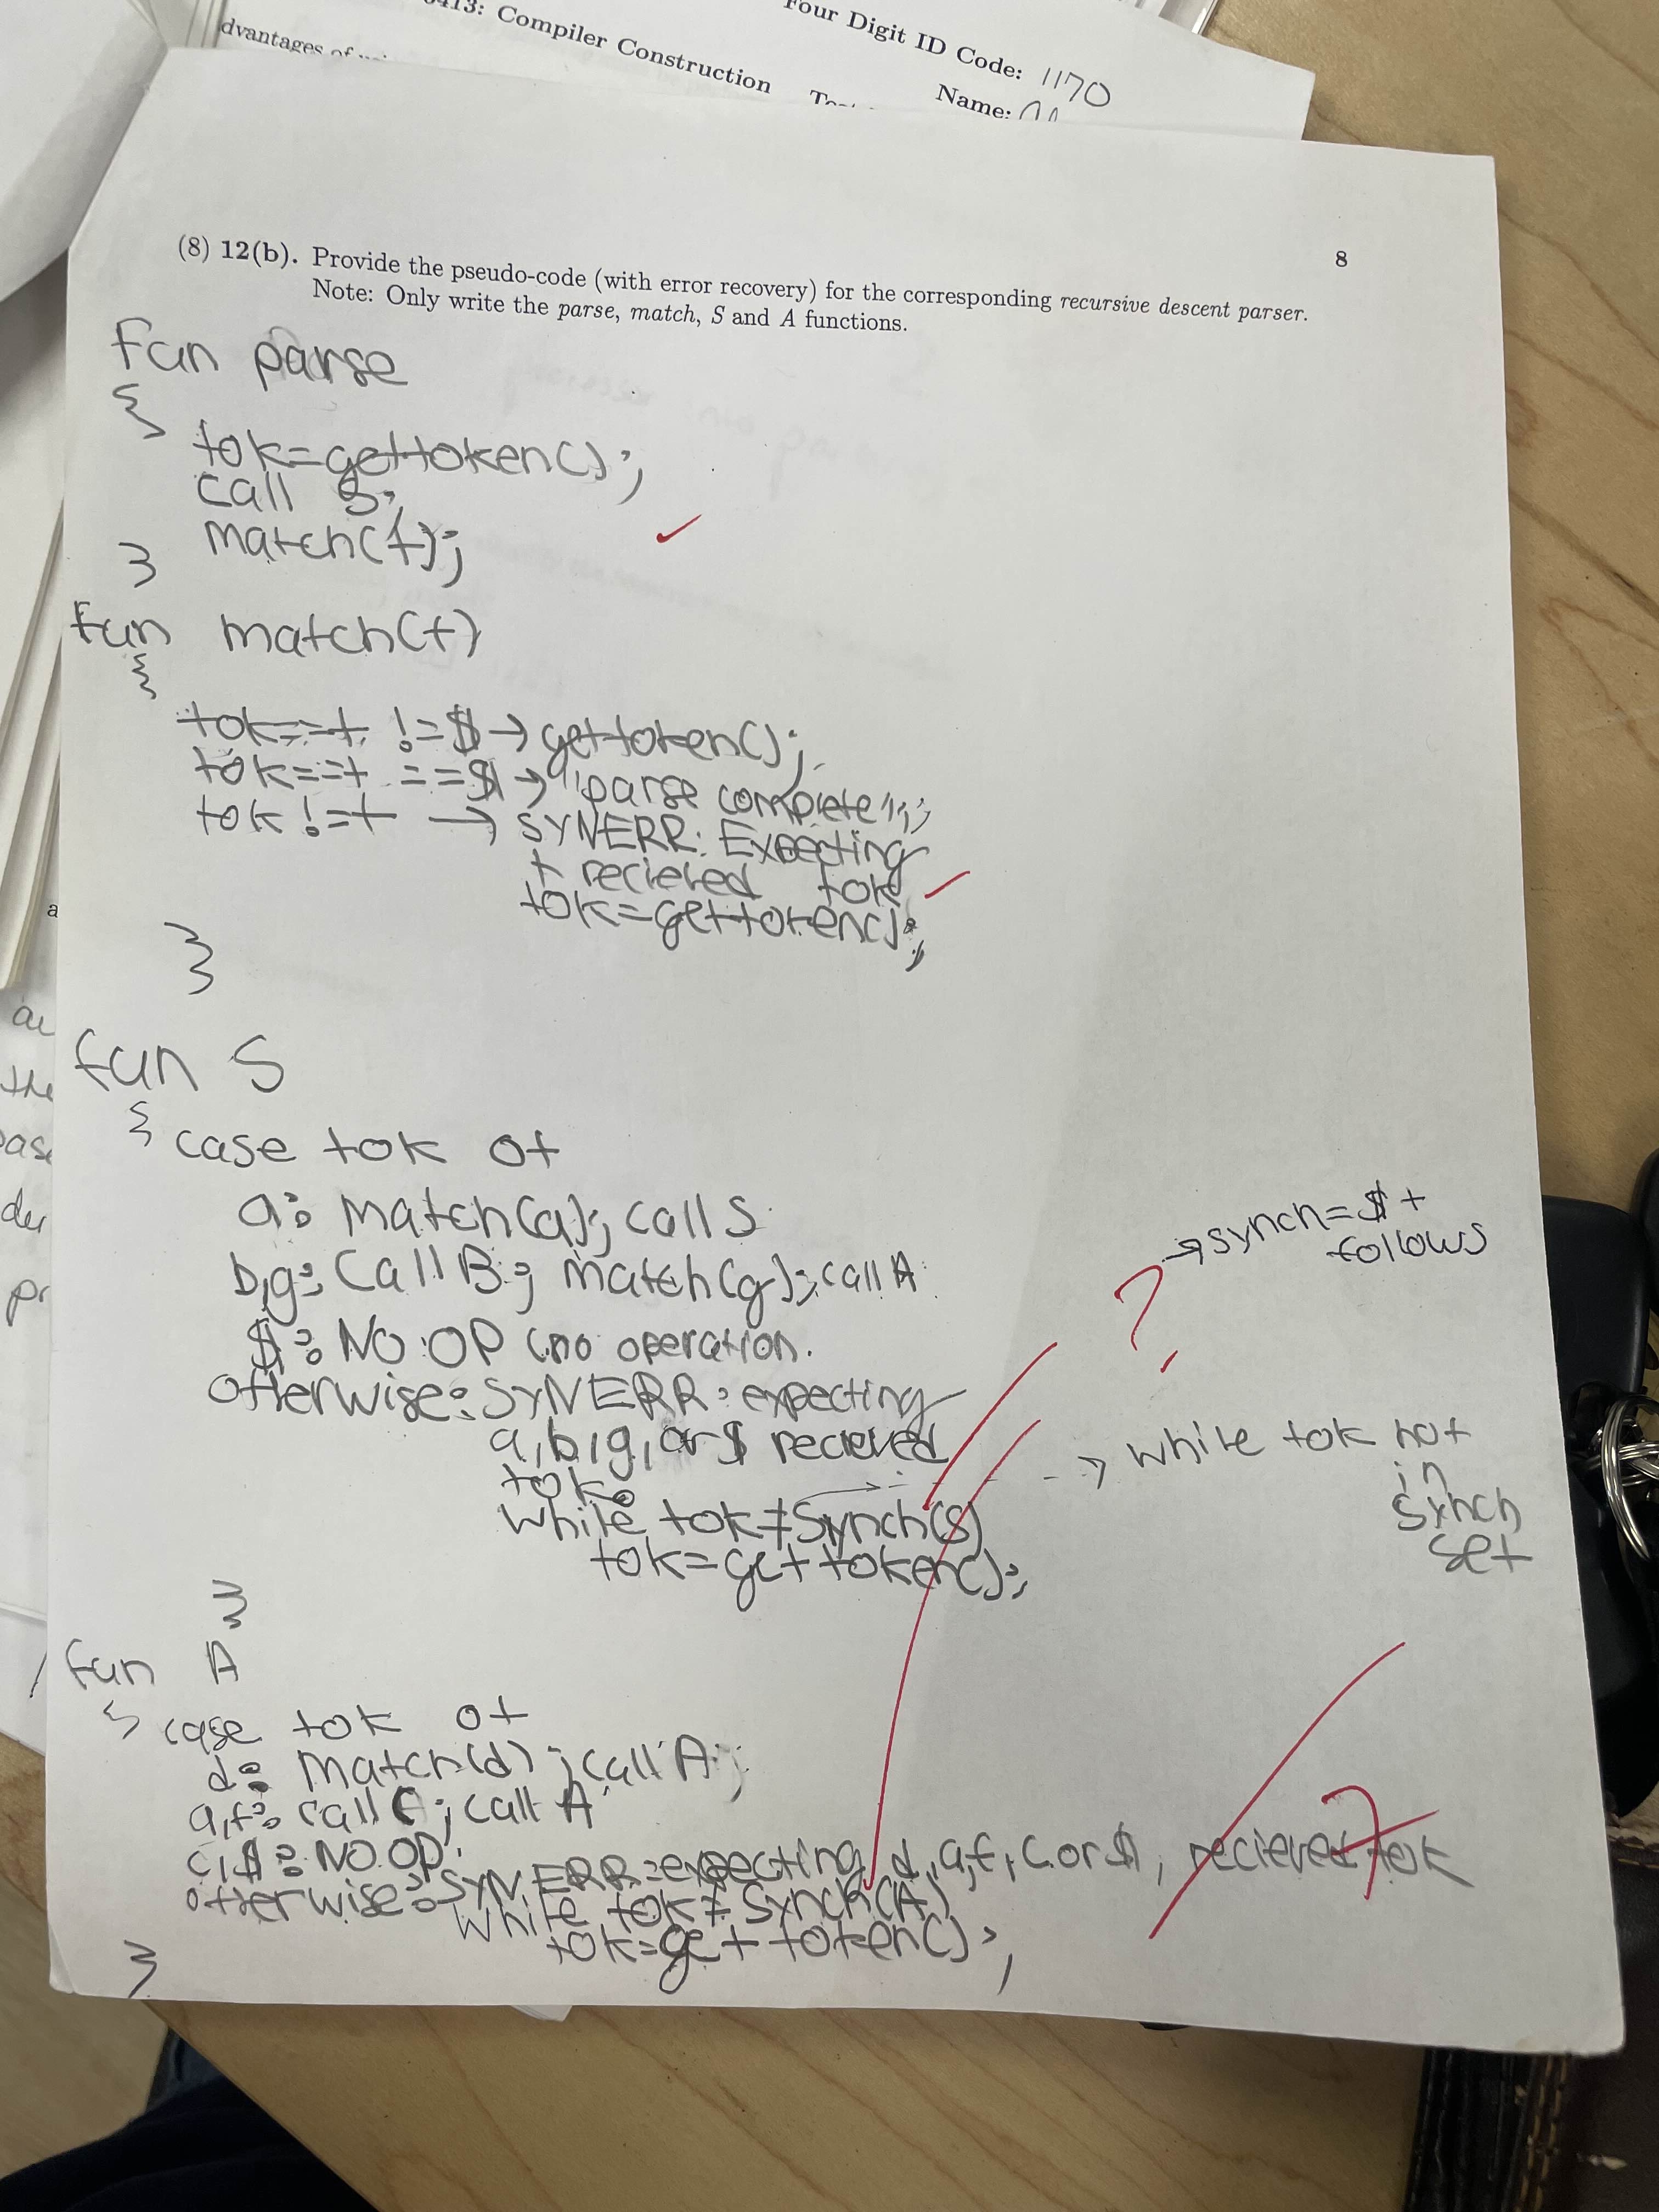 0413: Compiler Construction
Four Digit ID Code: 1170
dvantages of
Name:
8
(8) 12(b). Provide the pseudo-code (with error recovery) for the corresponding recursive descent parser.
Note: Only write the parse, match, S and A functions.
fun parse
{
tok=gettoken();
call S;
match(t);
}
fun match(t)
{
tok==t != $ → gettoken();
tok==t == $ → "parse complete";
tok != t → SYNERR: Expecting
t recieved tok
tok=gettoken();
}
fun S
{ case tok of
a: match(a); call S
b,g: Call B; match(g); call A
$: NO OP (no operation.
otherwise: SYNERR: expecting
a, b, g, or $ recieved
tok.
while tok ≠ Synch(S)
tok=gettoken();
}
→ synch = $ +
follows
?
→ while tok not
in
synch
set
fun A
{ case tok of
d: match(d); call A;
a,f: call C; call A
c,$: NO OP;
otherwise: SYNERR: expecting d, a, f, c. or $, recieved tok
while tok ≠ Synch(A)
tok=gettoken();
}
7
a
au
the
der
pr